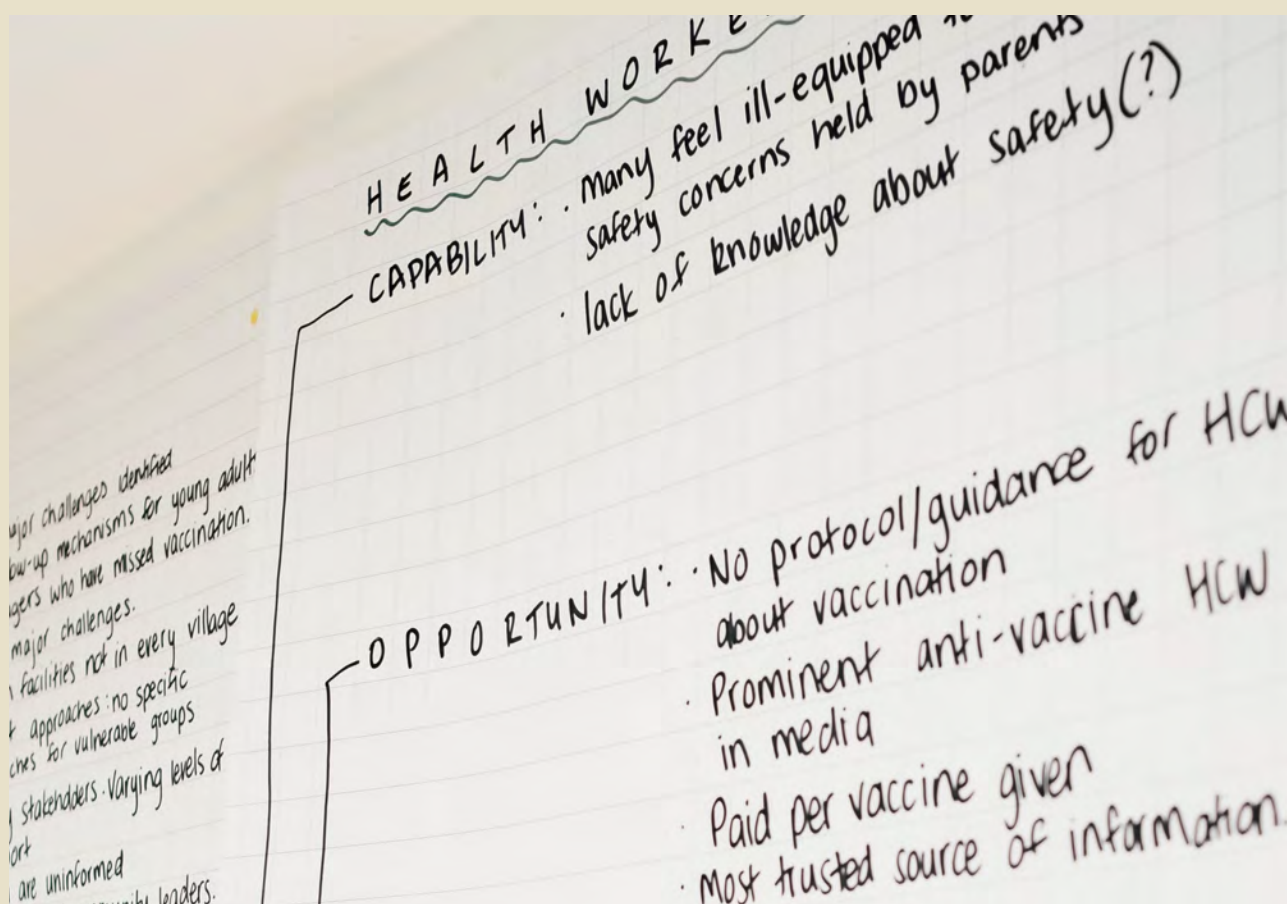 HEALTH
CAPABILITY: · many feel ill-equipped
safety concerns held by parents
· lack of knowledge about safety(?)
OPPORTUNITY: · No protocol/guidance for HCW
about vaccination
· Prominent anti-vaccine HCW
in media
· Paid per vaccine given
· most trusted source of information.
challenges identified
mechanisms for young adult
who have missed vaccination.
major challenges.
facilities not in every village
approaches: no specific
for vulnerable groups
stakeholders. Varying levels of
are uninformed
leaders.